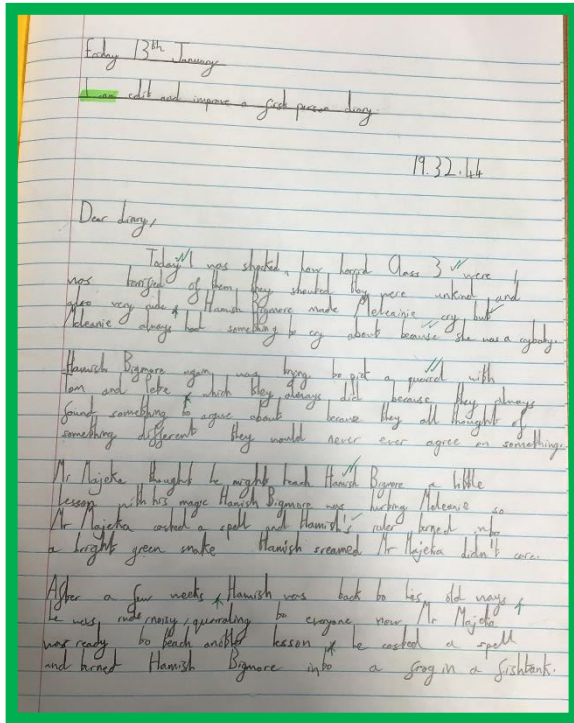 Friday 13th January
I am edit and improve a first person diary
19.32.44
Dear diary,
Today I was shocked, how horrid Class 3 were I
was terrified of them they shouted they were unkind and
also very rude Hamish Bigmore made Meleainie cry but
Meleanie always had something to cry about because she was a crybaby.
Hamish Bigmore again was trying to pick a quarrel with
Tom and Pete which they always did because they always
found something to argue about because they all thought of
something different they would never ever agree on something.
Mr Majeka thought he might teach Hamish Bigmore a little
lesson with his magic Hamish Bigmore was hurting Meleanie so
Mr Majeka casted a spell and Hamish's ruler turned into
a bright green snake Hamish sreamed Mr Majeka didn't care.
After a few weeks Hamish was back to his old ways
he was rude noisy, quarraling to everyone now Mr Majeka
was ready to teach another lesson he casted a spell
and turned Hamish Bigmore into a frog in a fishtank.